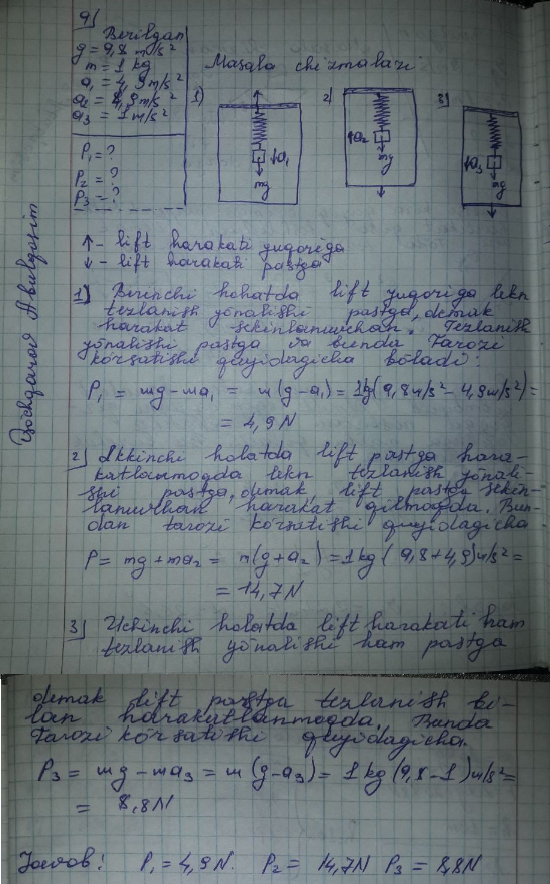 9)
Berilgan
g = 9,8 m/s²
m = 1 kg
a₁ = 4,9 m/s²
a₂ = 4,9 m/s²
a₃ = 1 m/s²
P₁ = ?
P₂ = ?
P₃ = ?
Masala chizmalari:
1) 2) 3)
↓a₁ ↑a₂ ↓a₃
mg mg mg
↑ - lift harakati yuqoriga
↓ - lift harakati pastga
1) Birinchi holatda lift yuqoriga lekn
tezlanish yónalishi pastga, demak
harakat sekinlanuvchan. Tezlanish
yónalishi pastga va bunda Tarozi
kórsatishi quyidagicha bóladi:
P₁ = mg - ma₁ = m(g - a₁) = 1kg(9,8 m/s² - 4,9 m/s²) =
= 4,9 N
2) Ikkinchi holatda lift pastga hara-
katlanmoqda lekn tezlanish yónali-
shi pastga, demak lift pastga sekin-
lanuvchan harakat qilmoqda. Bun-
dan tarozi kórsatishi quyidagicha
P = mg + ma₂ = m(g + a₂) = 1 kg (9,8 + 4,9) m/s² =
= 14,7 N
3) Uchinchi holatda lift harakati ham
tezlanish yónalishi ham pastga
demak lift pastga tezlanish bi-
lan harakatlanmoqda. Bunda
Tarozi kórsatishi quyidagicha.
P₃ = mg - ma₃ = m(g - a₃) = 1 kg (9,8 - 1) m/s² =
= 8,8 N
Javob: P₁ = 4,9 N. P₂ = 14,7 N P₃ = 8,8 N